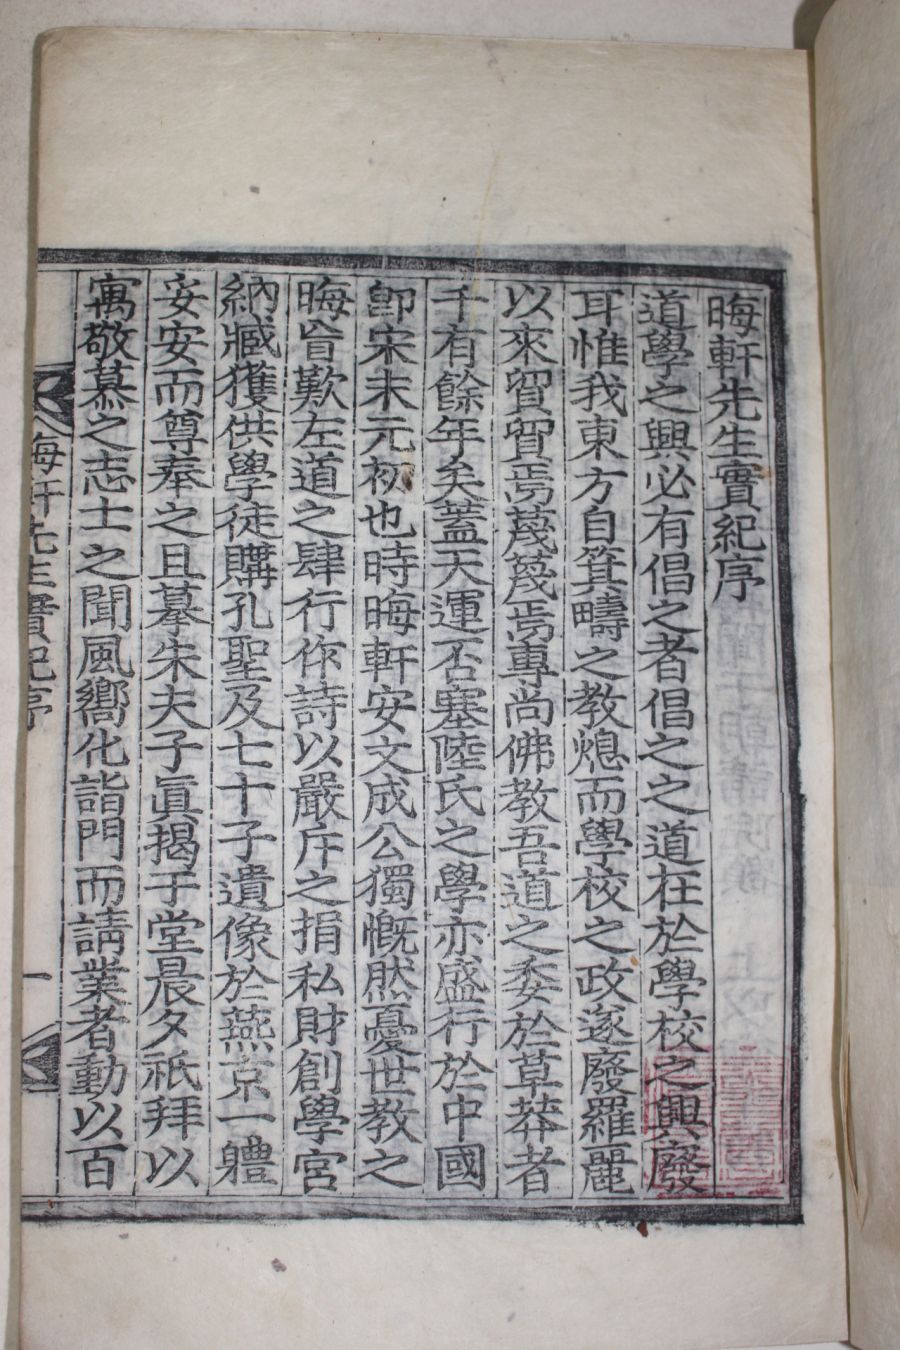 晦軒先生實紀序
道學之興必有倡之者倡之之道在於學校之興廢
耳惟我東方自箕疇之敎熄而學校之政遂廢羅麗
以來貿貿焉蔑蔑焉專尚佛敎吾道之委於草莽者
千有餘年矣蓋天運否塞陸氏之學亦盛行於中國
卽宋末元初也時晦軒安文成公獨慨然憂世敎之
晦盲歎左道之肆行作詩以嚴斥之捐私財創學宮
納臧獲供學徒購孔聖及七十子遺像於燕京一體
妥安而尊奉之且摹朱夫子眞揭于堂晨夕祇拜以
寓敬慕之志士之聞風嚮化詣門而請業者動以百
晦軒先生實紀序
一